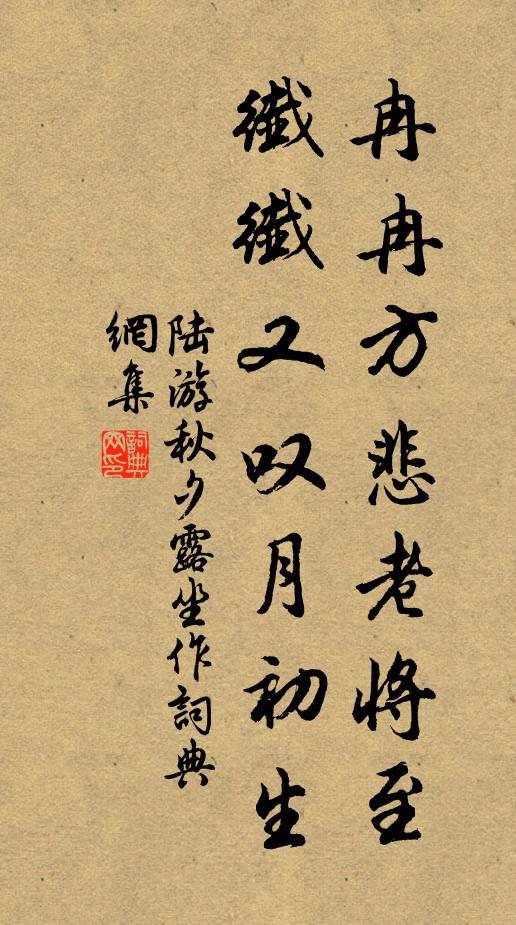 冉冉方悲老將至
纖纖又叹月初生
陆游秋夕露坐作詞典
網集
詞典
网印